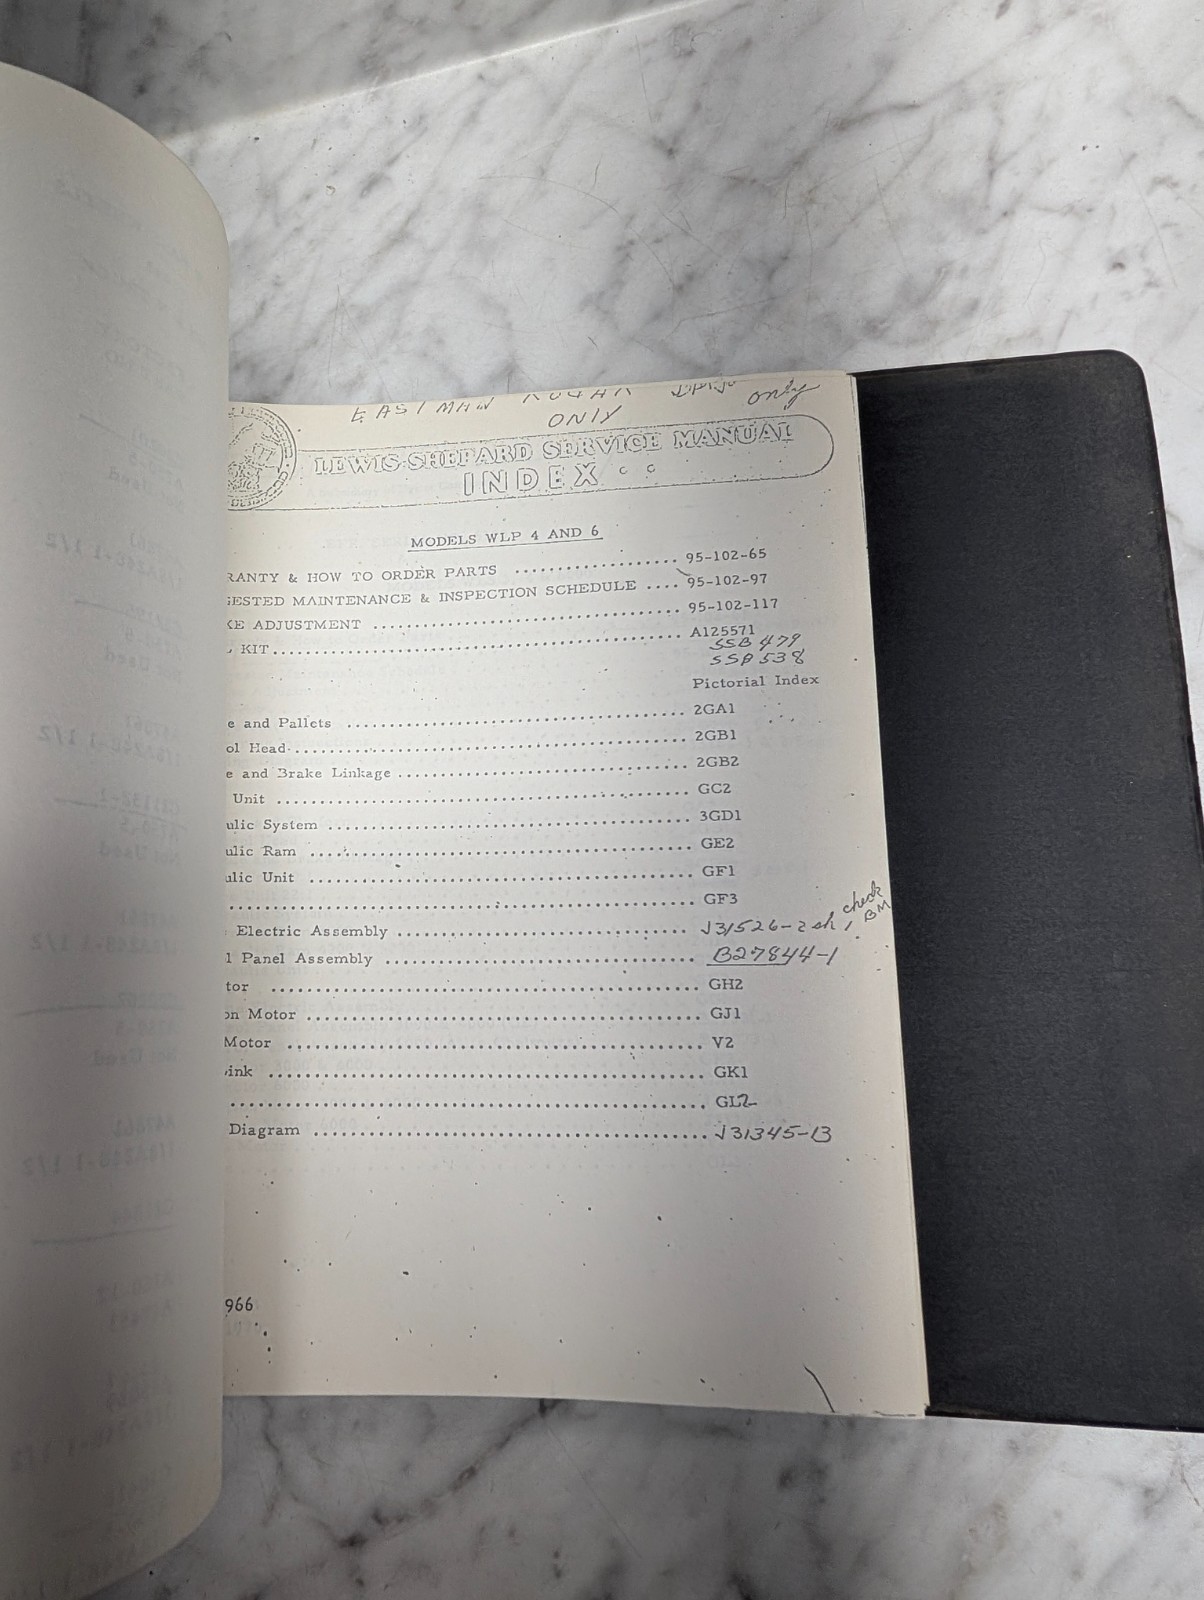 EASTMAN KODAK only
ONLY
LEWIS-SHEPARD SERVICE MANUAL
INDEX
MODELS WLP 4 AND 6
RANTY & HOW TO ORDER PARTS .................... 95-102-65
ESTED MAINTENANCE & INSPECTION SCHEDULE .... 95-102-97
KE ADJUSTMENT .................... 95-102-117
KIT .................... A125571
SSB 479
SSP 538
Pictorial Index
e and Pallets .................... 2GA1
ol Head .................... 2GB1
e and Brake Linkage .................... 2GB2
Unit .................... GC2
ulic System .................... 3GD1
ulic Ram .................... GE2
ulic Unit .................... GF1
.................... GF3
Electric Assembly .................... J31526-2 sh 1 check BM
l Panel Assembly .................... B27844-1
tor .................... GH2
on Motor .................... GJ1
Motor .................... V2
.................... GK1
.................... GL2
Diagram .................... J31345-13
966